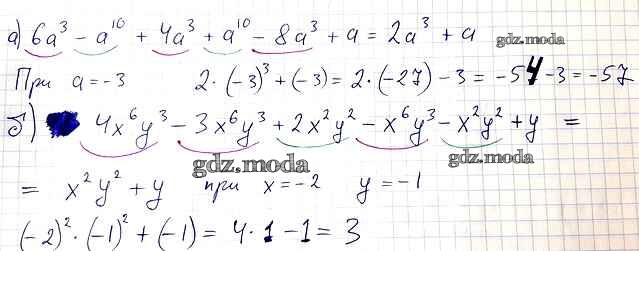 а) 6a³ - a¹⁰ + 4a³ + a¹⁰ - 8a³ + a = 2a³ + a gdz.moda
При a = -3 2·(-3)³ + (-3) = 2·(-27) - 3 = -54 - 3 = -57
б) 4x⁶y³ - 3x⁶y³ + 2x²y² - x⁶y³ - x²y² + y =
gdz.moda gdz.moda
= x²y² + y при x = -2 y = -1
(-2)²·(-1)² + (-1) = 4·1 - 1 = 3